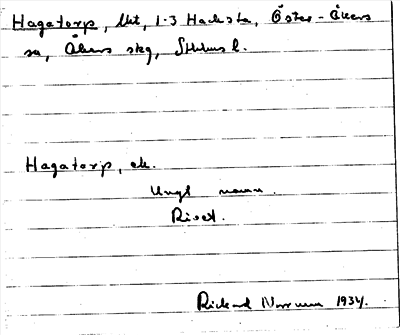 Hagatorp, lht, 1.3 Hacksta, Öster-Åkers
sn, Åkers skg, Sthlms l.
Hagatorp, ek.
Ungt namn.
Rivet.
Rickard 1934.